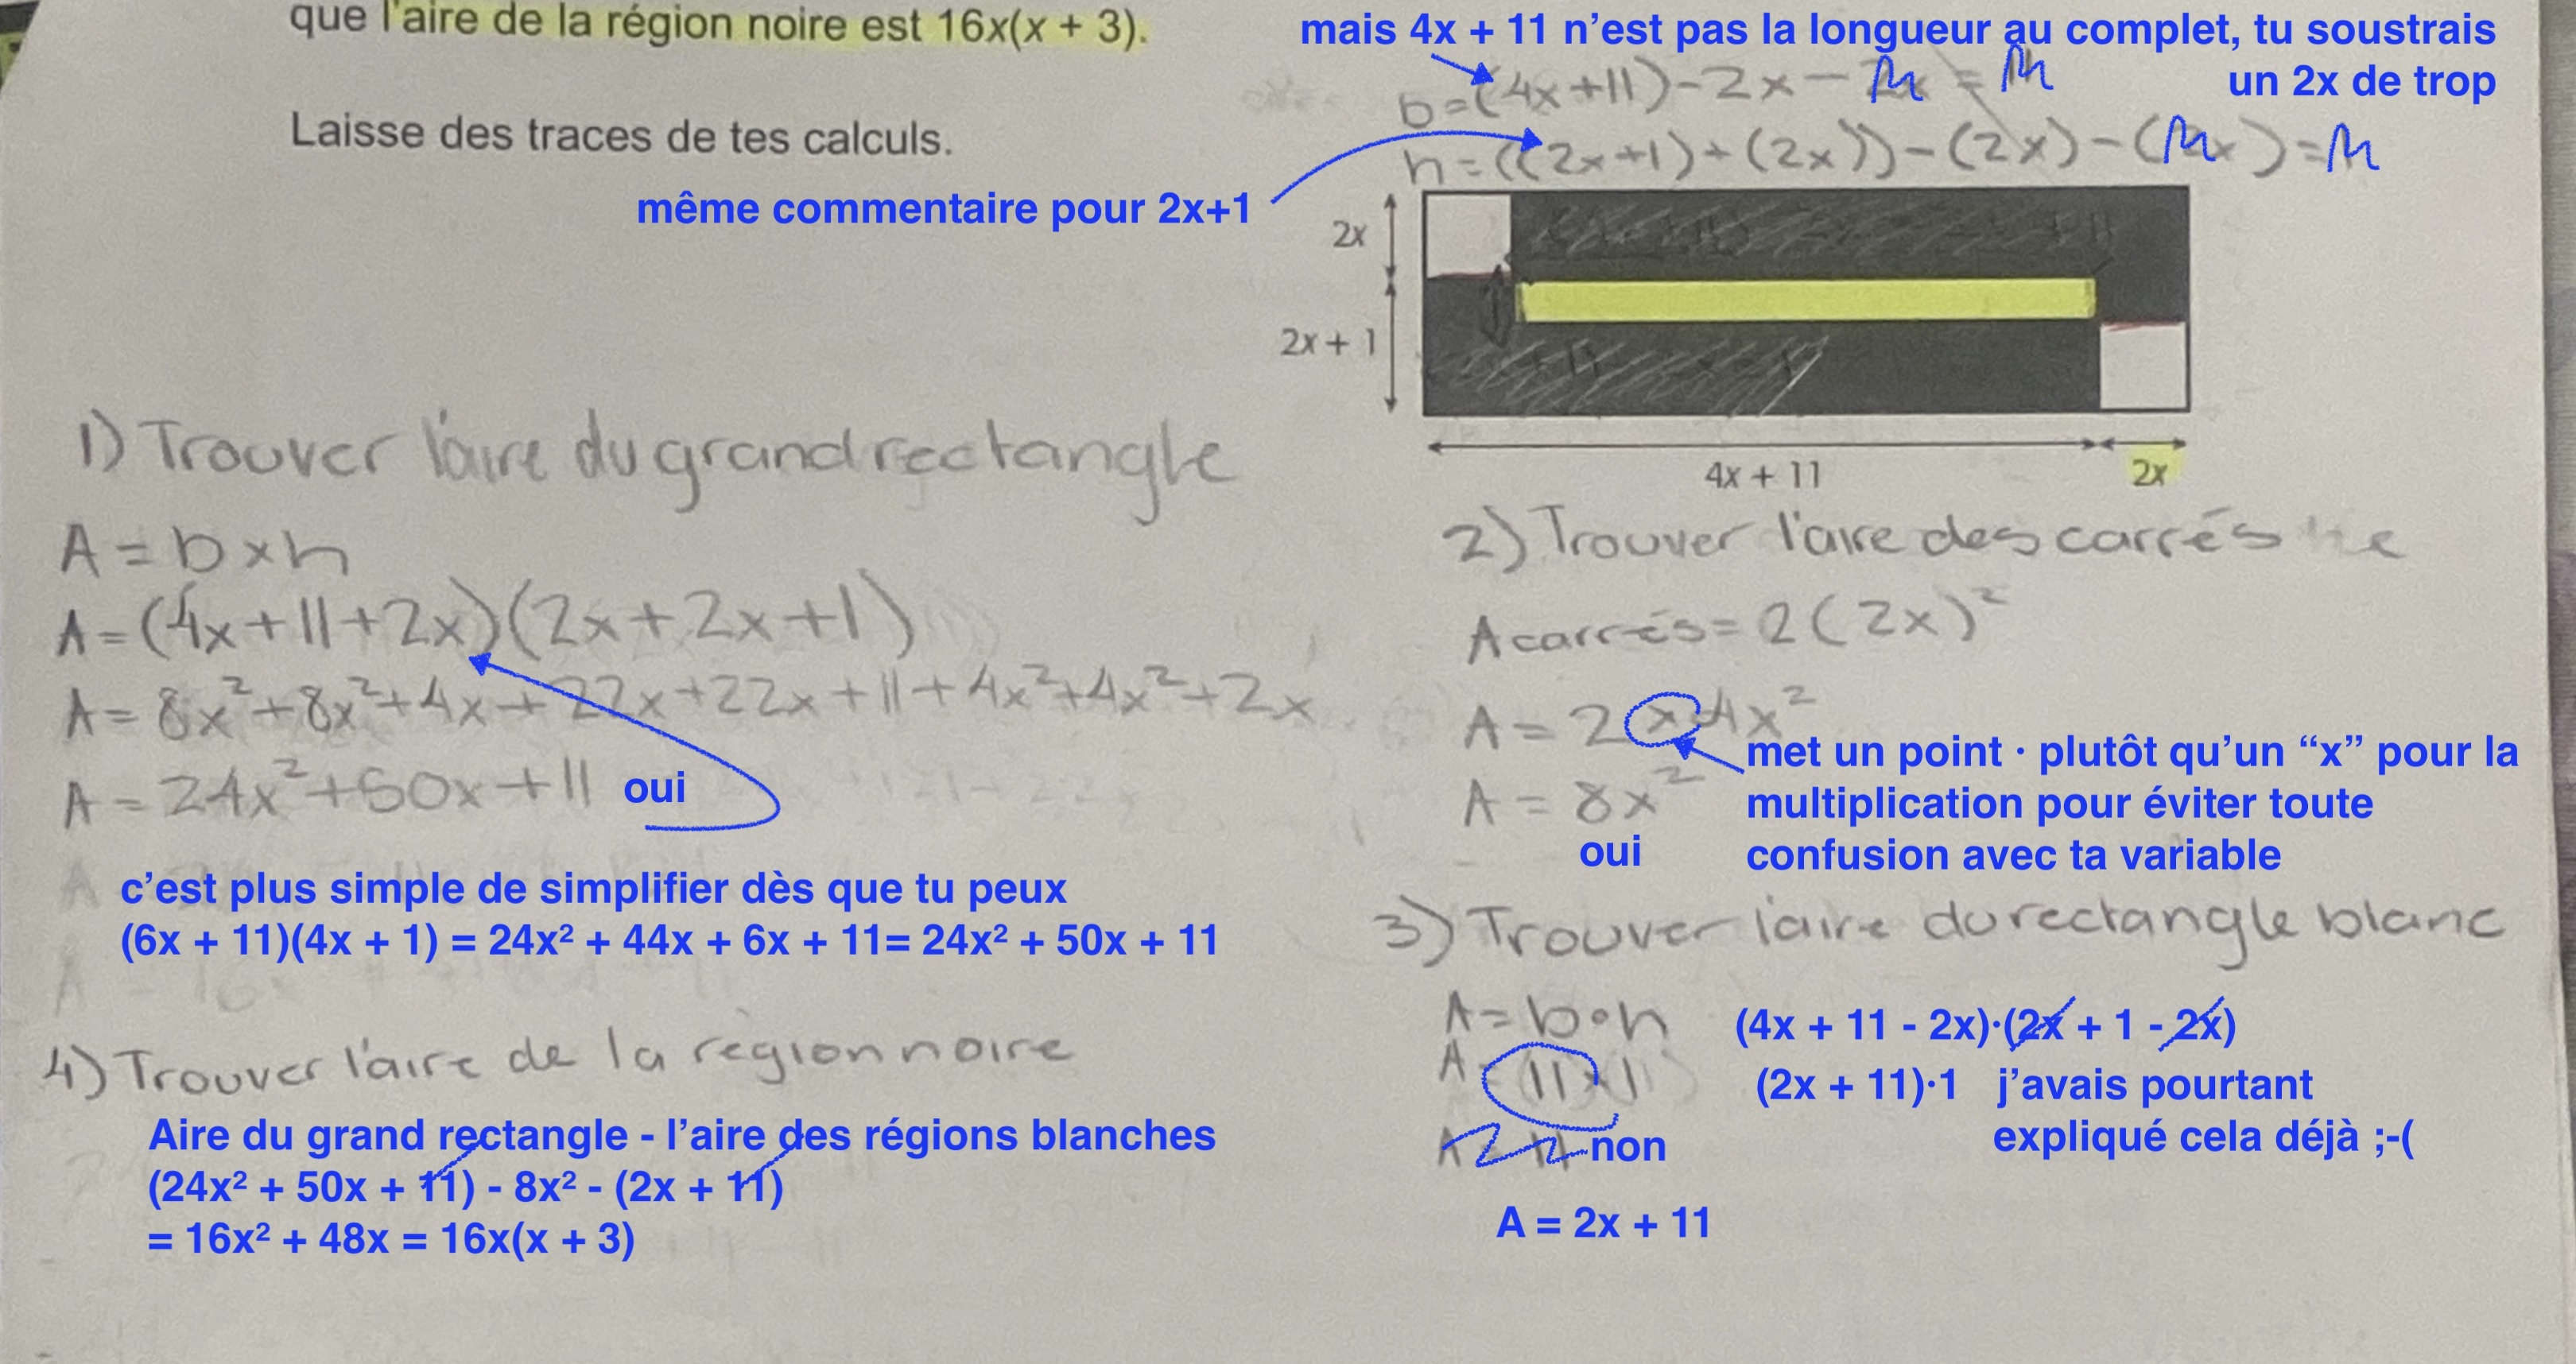 que l'aire de la région noire est 16x(x + 3).
Laisse des traces de tes calculs.
mais 4x + 11 n'est pas la longueur au complet, tu soustrais
un 2x de trop
b=(4x+11)-2x-
même commentaire pour 2x+1
h=((2x+1)+(2x))-(2x)-(
2x
2x + 1
4x + 11
2x
1) Trouver l'aire du grand rectangle
A = b x h
A=(4x+11+2x)(2x+2x+1)
A= 8x²+8x²+4x+22x+22x+11+4x²+4x²+2x
A= 24x²+50x+11
oui
c'est plus simple de simplifier dès que tu peux
(6x + 11)(4x + 1) = 24x² + 44x + 6x + 11= 24x² + 50x + 11
2) Trouver l'aire des carrés
A carrés= 2(2x)²
A = 2x4x²
A = 8x²
oui
met un point · plutôt qu'un “x” pour la
multiplication pour éviter toute
confusion avec ta variable
3) Trouver l'aire du rectangle blanc
A= b•h
(4x + 11 - 2x)·(2x + 1 - 2x)
(2x + 11)·1 j'avais pourtant
expliqué cela déjà ;-(
non
A = 2x + 11
4) Trouver l'aire de la région noire
Aire du grand rectangle - l'aire des régions blanches
(24x² + 50x + 11) - 8x² - (2x + 11)
= 16x² + 48x = 16x(x + 3)